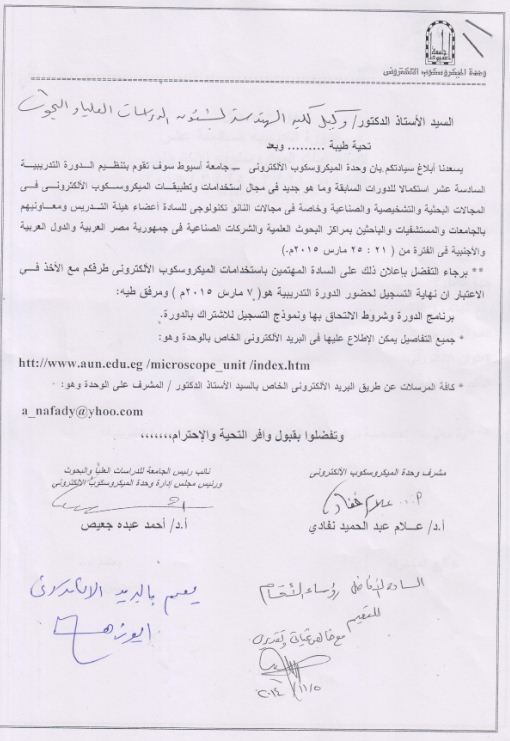 وحدة الميكروسكوب الالكترونى
السيد الأستاذ الدكتور/ وكيل كلية الهندسة لشئون الدراسات العليا والبحوث
تحية طيبة ......... وبعد
يسعدنا أبلاغ سيادتكم بان وحدة الميكروسكوب الألكترونى – جامعة أسيوط سوف تقوم بتنظيم الدورة التدريبية
السادسة عشر استكمالا للدورات السابقة وما هو جديد فى مجال استخدامات وتطبيقات الميكروسكوب الألكترونى فى
المجالات البحثية والتشخيصية والصناعية وخاصة فى مجالات النانو تكنولوجى للسادة أعضاء هيئة التدريس ومعاونيهم
بالجامعات والمستشفيات والباحثين بمراكز البحوث العلمية والشركات الصناعية فى جمهورية مصر العربية والدول العربية
والأجنبية فى الفترة من ( ٢١ : ٢٥ مارس ٢٠١٥م.)
** برجاء التفضل بإعلان ذلك على السادة المهتمين باستخدامات الميكروسكوب الألكترونى طرفكم مع الأخذ فى
الاعتبار ان نهاية التسجيل لحضور الدورة التدريبية هو( ٧ مارس ٢٠١٥م ) ومرفق طيه:
برنامج الدورة وشروط الالتحاق بها ونموذج التسجيل للاشتراك بالدورة.
* جميع التفاصيل يمكن الإطلاع عليها فى البريد الألكترونى الخاص بالوحدة وهو:
htt://www.aun.edu.eg /microscope_unit /index.htm
* كافة المرسلات عن طريق البريد الألكترونى الخاص بالسيد الأستاذ الدكتور / المشرف على الوحدة وهو :
a_nafady@yhoo.com
وتفضلوا بقبول وافر التحية والاحترام،،،،،،،
مشرف وحدة الميكروسكوب الألكترونى
أ.د/ علام عبد الحميد نفادي
نائب رئيس الجامعة للدراسات العليا والبحوث
ورئيس مجلس إدارة وحدة الميكروسكوب الألكترونى
أ.د/ أحمد عبده جعيص
السادة الأفاضل رؤساء الأقسام
للتعميم
مع خالص تحياتى وتقديرى
يعمم بالبريد الالكترونى